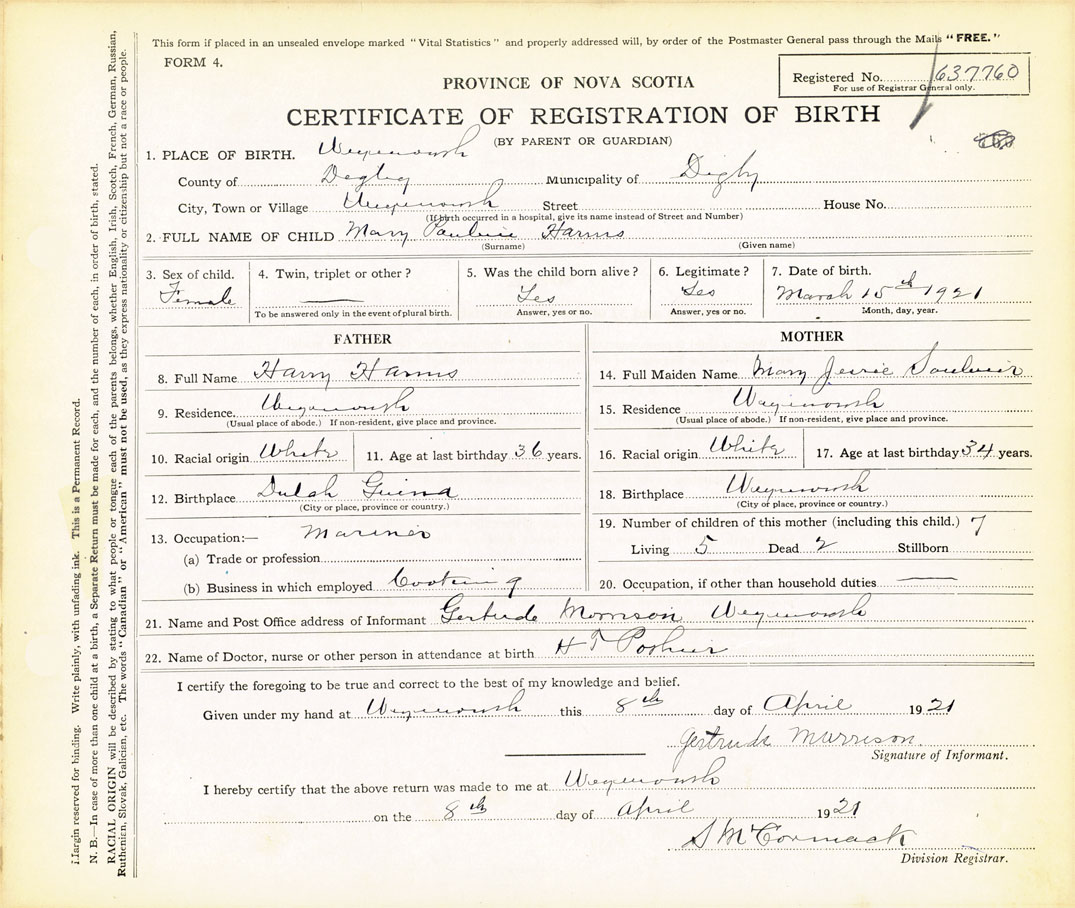 This form if placed in an unsealed envelope marked "Vital Statistics" and properly addressed will, by order of the Postmaster General pass through the Mails "FREE."
FORM 4.
Registered No. 637760
For use of Registrar General only.
PROVINCE OF NOVA SCOTIA
CERTIFICATE OF REGISTRATION OF BIRTH
(BY PARENT OR GUARDIAN)
1. PLACE OF BIRTH. Weymouth
County of Digby Municipality of Digby
City, Town or Village Weymouth Street House No.
(If birth occurred in a hospital, give its name instead of Street and Number)
2. FULL NAME OF CHILD Mary Pauline Harms
(Surname) (Given name)
3. Sex of child. 4. Twin, triplet or other? 5. Was the child born alive? 6. Legitimate? 7. Date of birth.
Female Yes Yes March 15th 1921
To be answered only in the event of plural birth. Answer, yes or no. Answer, yes or no. Month, day, year.
FATHER
8. Full Name Harry Harms
9. Residence. Weymouth
(Usual place of abode.) If non-resident, give place and province.
10. Racial origin White 11. Age at last birthday 36 years.
12. Birthplace Dutch
(City or place, province or country.)
13. Occupation:— Mariner
(a) Trade or profession
(b) Business in which employed Coasting
MOTHER
14. Full Maiden Name Mary Jessie
15. Residence Weymouth
(Usual place of abode.) If non-resident, give place and province.
16. Racial origin White 17. Age at last birthday 34 years.
18. Birthplace Weymouth
(City or place, province or country.)
19. Number of children of this mother (including this child.) 7
Living 5 Dead 2 Stillborn
20. Occupation, if other than household duties
21. Name and Post Office address of Informant Gertrude Morrison Weymouth
22. Name of Doctor, nurse or other person in attendance at birth H T
I certify the foregoing to be true and correct to the best of my knowledge and belief.
Given under my hand at Weymouth this 8th day of April 1921
Gertrude Morrison
Signature of Informant.
I hereby certify that the above return was made to me at Weymouth
on the 8th day of April 1921
S McCormack
Division Registrar.
Margin reserved for binding. Write plainly, with unfading ink. This is a Permanent Record.
N. B.—In case of more than one child at a birth, a Separate Return must be made for each, and the number of each, in order of birth, stated.
RACIAL ORIGIN will be described by stating to what people or tongue each of the parents belongs, whether English, Irish, Scotch, French, German, Russian,
Ruthenian, Slovak, Galician, etc. The words "Canadian" or "American" must not be used, as they express nationality or citizenship but not a race or people.